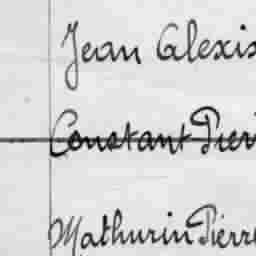 Jean Alexis
Constant Pierr
Mathurin Pierre